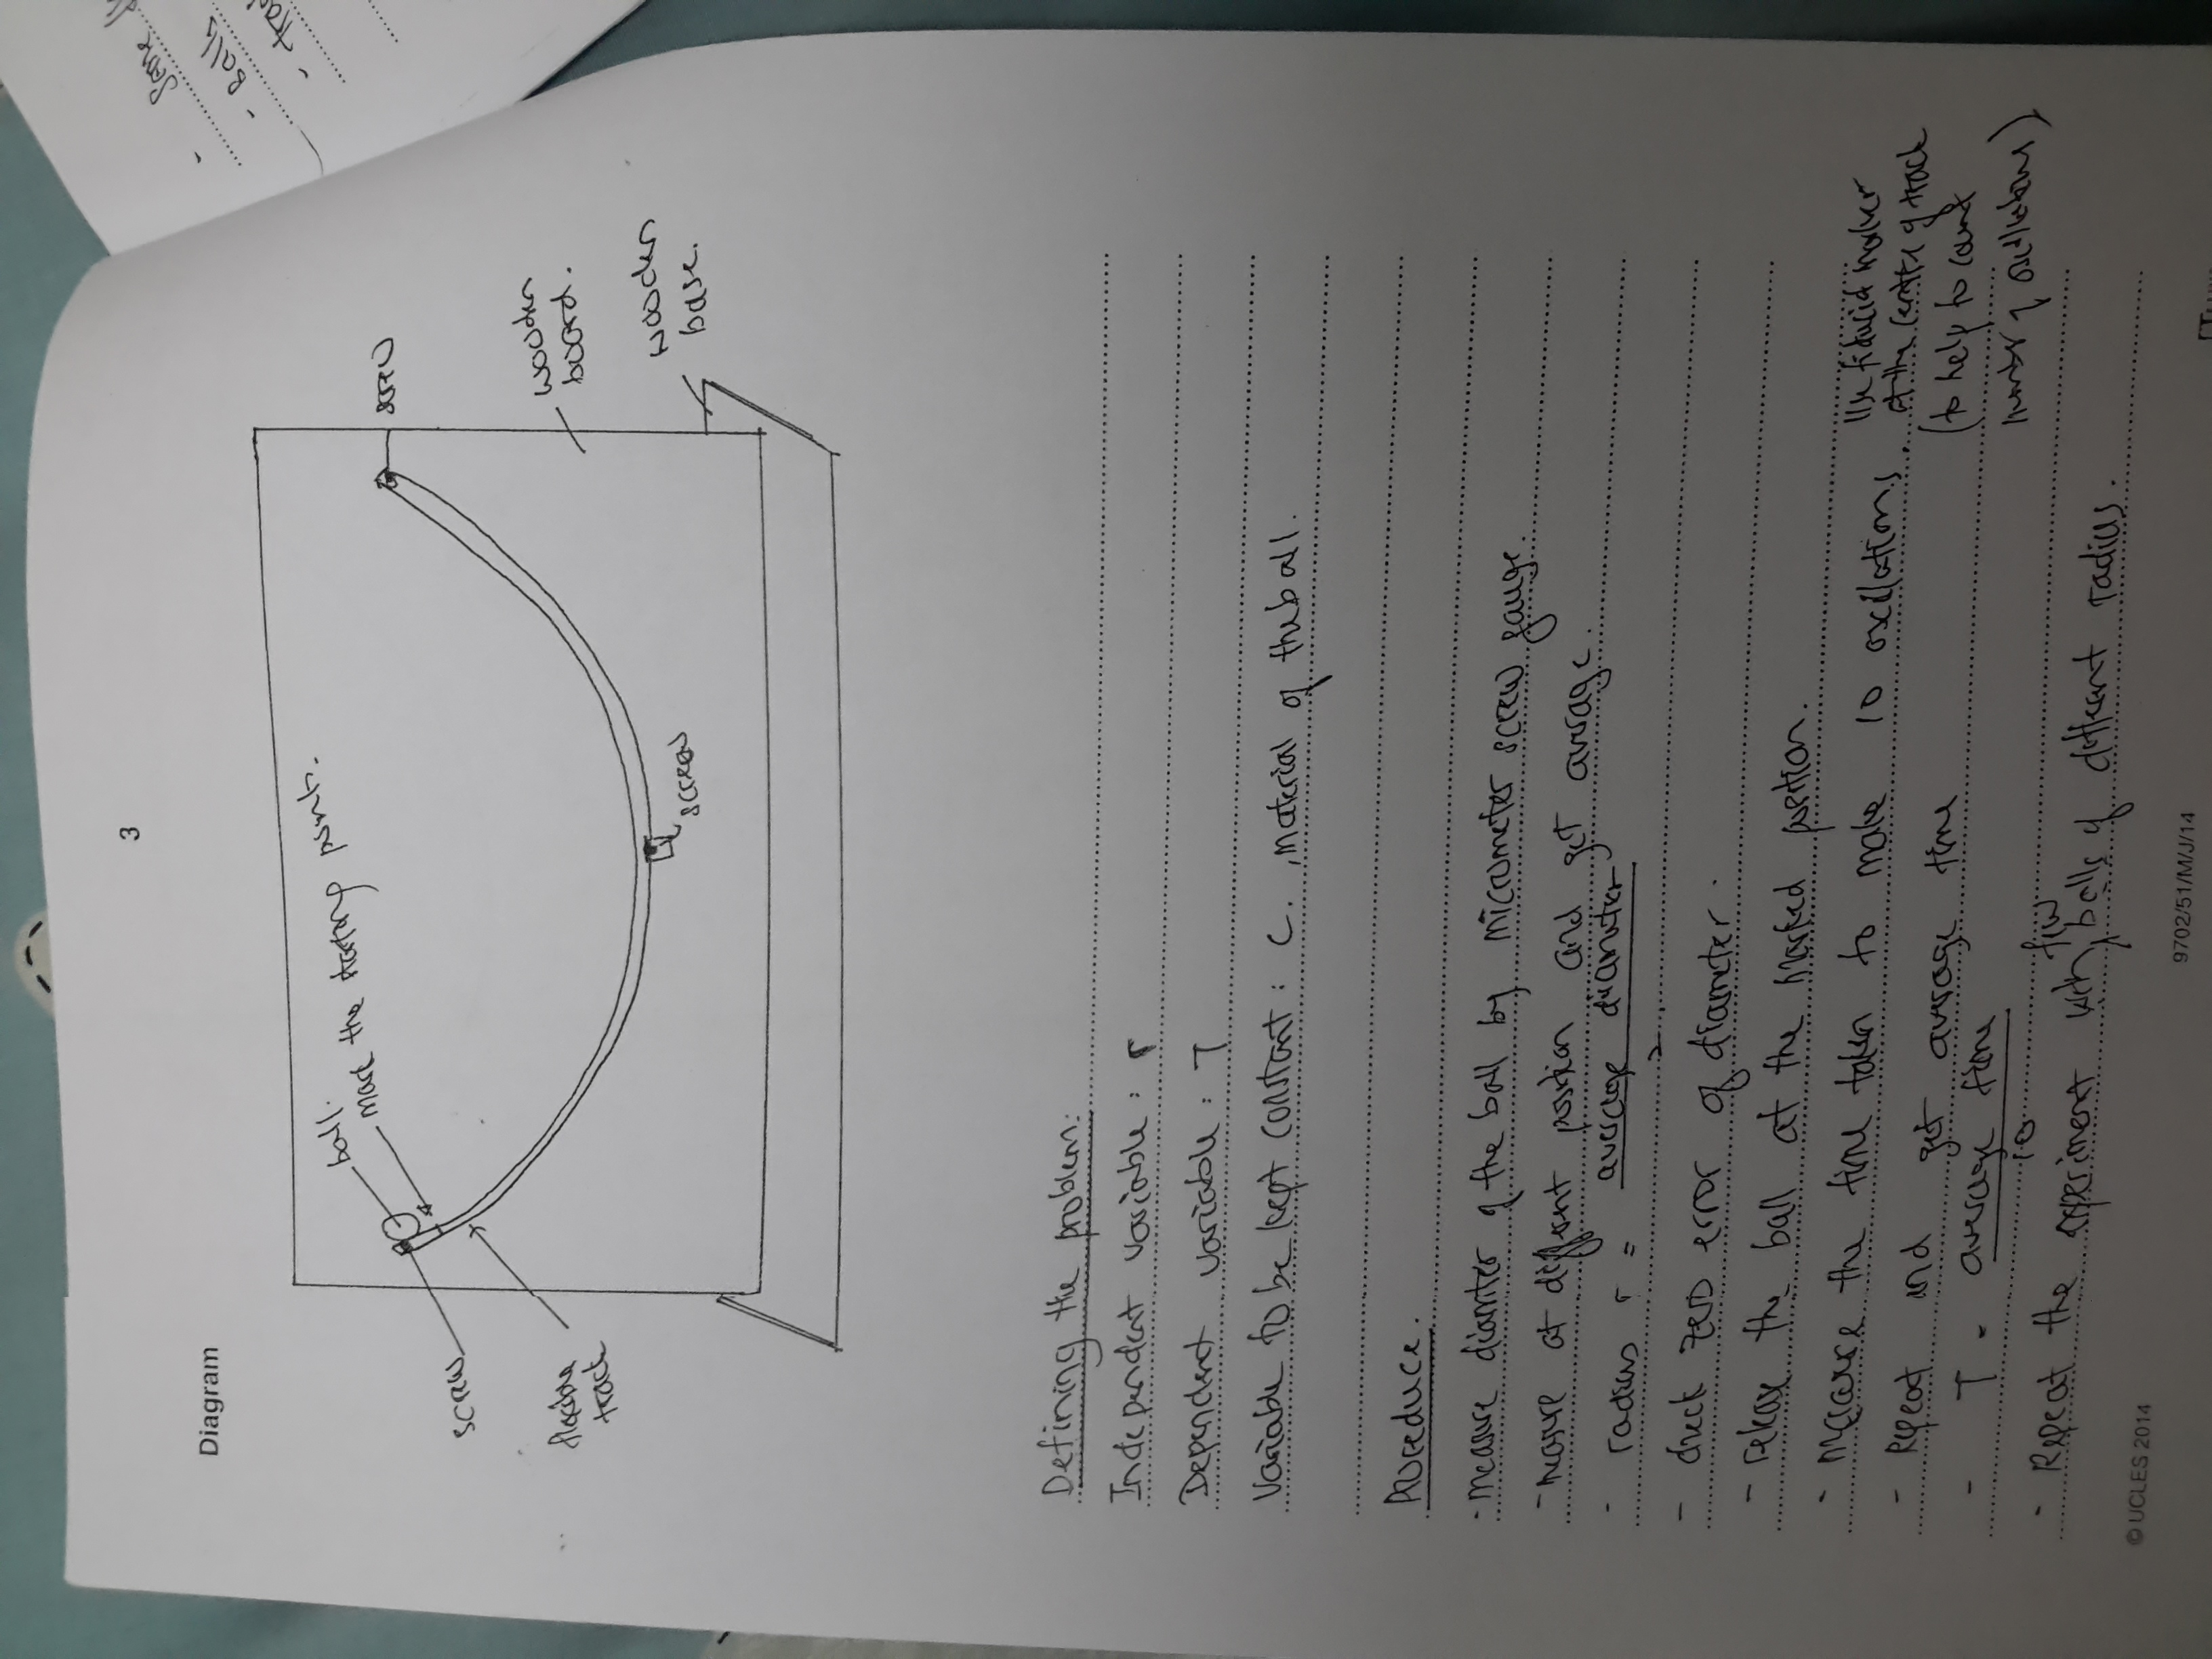 3
Diagram
ball.
mark the starting points.
screw
screw
flexible
track
wooden
board.
wooden
base.
screw
Defining the problem:
Independent variable : r
Dependent variable : T
Variable to be kept constant : C. , material of the ball.
Procedure.
- measure diamter of the ball by micrometer screw gauge.
- measure at different position and get average.
- radius r = average diameter
2
- check zero error of diameter.
- release the ball at the marked position.
- measure the time taken to make 10 oscillations. Use fiducial marker
at the centre of track
- Repeat and get average time
(to help to count
- T = average time
10
number of oscillations)
- Repeat the experiment with few balls of different radius.
© UCLES 2014
9702/51/M/J/14
- Same
- Balls